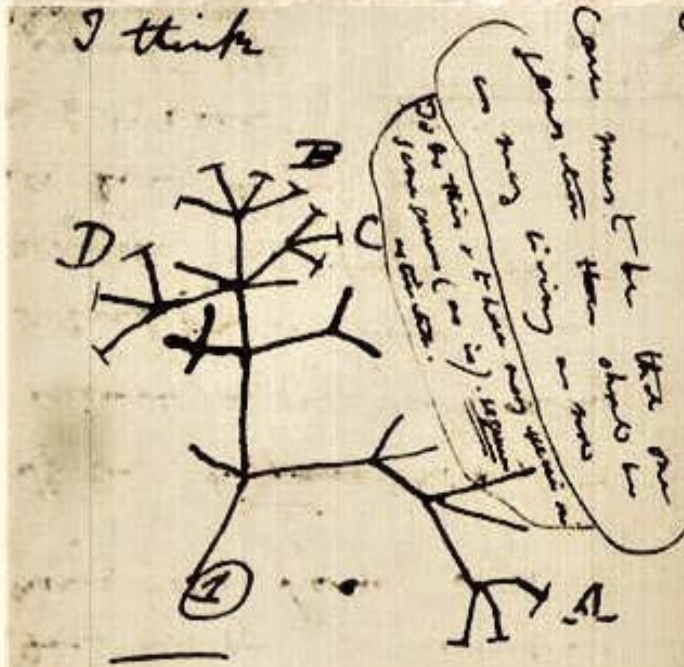 I think
B
C
D
1
A
Case must be that one
generation then should be
as many living as now
To do this & to have many species in
same genus (as is). requires
extinction.